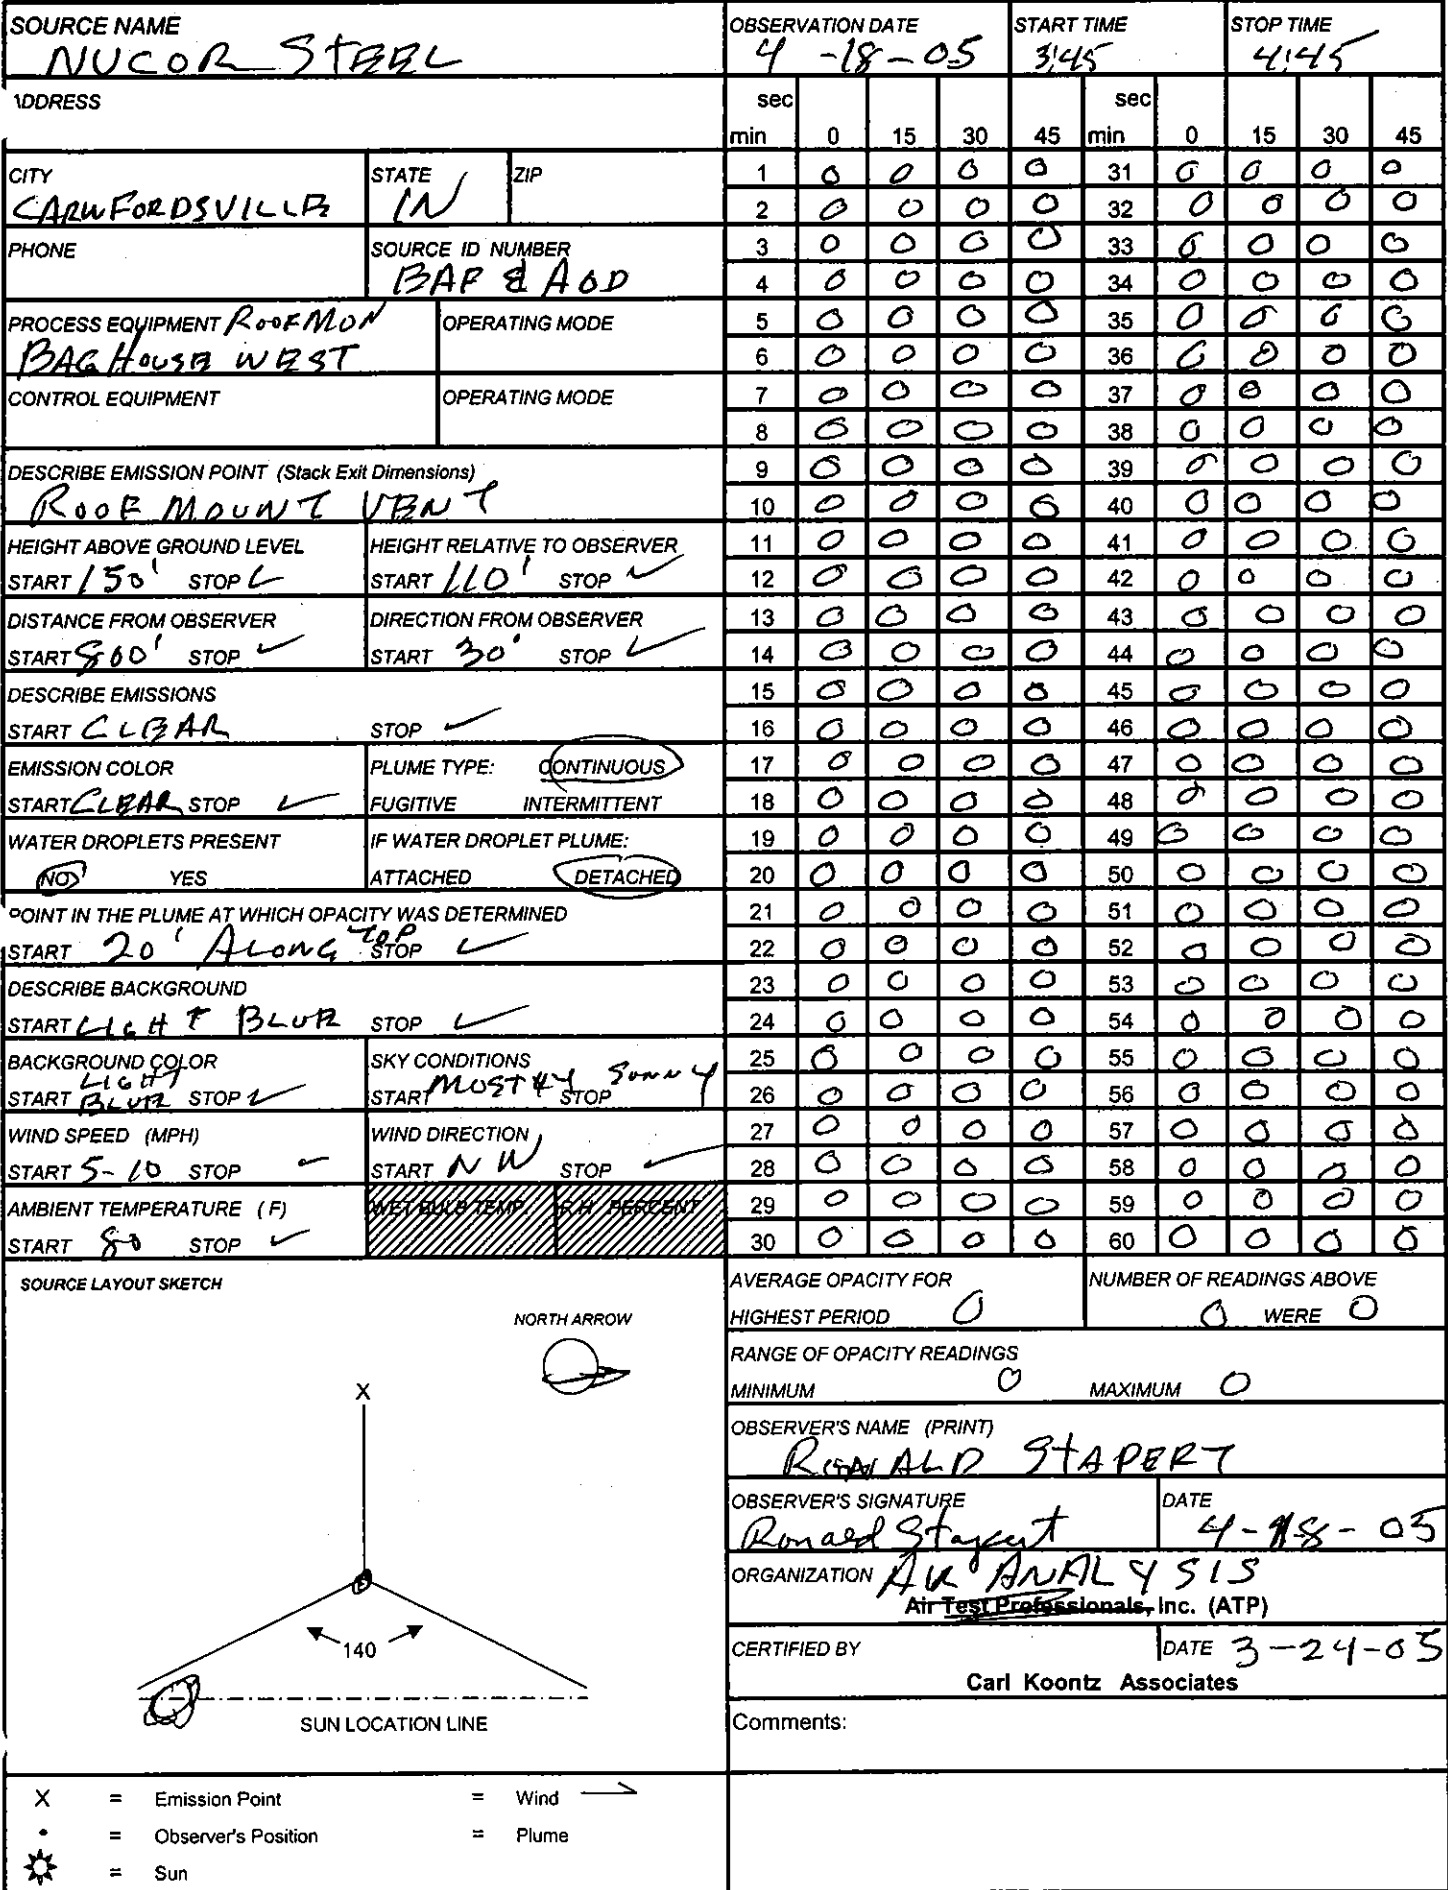 SOURCE NAME
NUCOR STEEL
OBSERVATION DATE
4-18-05
START TIME
3:45
STOP TIME
4:45
ADDRESS
CITY
CARWFORDSVILLE
STATE
IN
ZIP
PHONE
SOURCE ID NUMBER
EAF & AOD
PROCESS EQUIPMENT ROOF MON
BAGHOUSE WEST
OPERATING MODE
CONTROL EQUIPMENT
OPERATING MODE
DESCRIBE EMISSION POINT (Stack Exit Dimensions)
ROOF MOUNT VENT
HEIGHT ABOVE GROUND LEVEL
START 150' STOP ✓
HEIGHT RELATIVE TO OBSERVER
START 110' STOP ✓
DISTANCE FROM OBSERVER
START 800' STOP ✓
DIRECTION FROM OBSERVER
START 30° STOP ✓
DESCRIBE EMISSIONS
START CLEAR STOP ✓
EMISSION COLOR
START CLEAR STOP ✓
PLUME TYPE: CONTINUOUS
FUGITIVE INTERMITTENT
WATER DROPLETS PRESENT
NO YES
IF WATER DROPLET PLUME:
ATTACHED DETACHED
POINT IN THE PLUME AT WHICH OPACITY WAS DETERMINED
START 20' ALONG TOP STOP ✓
DESCRIBE BACKGROUND
START LIGHT BLUE STOP ✓
BACKGROUND COLOR
START LIGHT BLUE STOP ✓
SKY CONDITIONS
START MOSTLY SUNNY STOP
WIND SPEED (MPH)
START 5-10 STOP ✓
WIND DIRECTION
START NW STOP ✓
AMBIENT TEMPERATURE (F)
START 80 STOP ✓
WET BULB TEMP. R.H. PERCENT
sec sec
min 0 15 30 45 min 0 15 30 45
1 0 0 0 0 31 0 0 0 0
2 0 0 0 0 32 0 0 0 0
3 0 0 0 0 33 0 0 0 0
4 0 0 0 0 34 0 0 0 0
5 0 0 0 0 35 0 0 0 0
6 0 0 0 0 36 0 0 0 0
7 0 0 0 0 37 0 0 0 0
8 0 0 0 0 38 0 0 0 0
9 0 0 0 0 39 0 0 0 0
10 0 0 0 0 40 0 0 0 0
11 0 0 0 0 41 0 0 0 0
12 0 0 0 0 42 0 0 0 0
13 0 0 0 0 43 0 0 0 0
14 0 0 0 0 44 0 0 0 0
15 0 0 0 0 45 0 0 0 0
16 0 0 0 0 46 0 0 0 0
17 0 0 0 0 47 0 0 0 0
18 0 0 0 0 48 0 0 0 0
19 0 0 0 0 49 0 0 0 0
20 0 0 0 0 50 0 0 0 0
21 0 0 0 0 51 0 0 0 0
22 0 0 0 0 52 0 0 0 0
23 0 0 0 0 53 0 0 0 0
24 0 0 0 0 54 0 0 0 0
25 0 0 0 0 55 0 0 0 0
26 0 0 0 0 56 0 0 0 0
27 0 0 0 0 57 0 0 0 0
28 0 0 0 0 58 0 0 0 0
29 0 0 0 0 59 0 0 0 0
30 0 0 0 0 60 0 0 0 0
SOURCE LAYOUT SKETCH
NORTH ARROW
X
140
SUN LOCATION LINE
X = Emission Point = Wind
= Observer's Position = Plume
= Sun
AVERAGE OPACITY FOR
HIGHEST PERIOD 0
NUMBER OF READINGS ABOVE
0 WERE 0
RANGE OF OPACITY READINGS
MINIMUM 0 MAXIMUM 0
OBSERVER'S NAME (PRINT)
RONALD STAPERT
OBSERVER'S SIGNATURE
Ronald Stapert
DATE
4-18-05
ORGANIZATION AIR ANALYSIS
Air Test Professionals, Inc. (ATP)
CERTIFIED BY
Carl Koontz Associates
DATE 3-24-05
Comments: